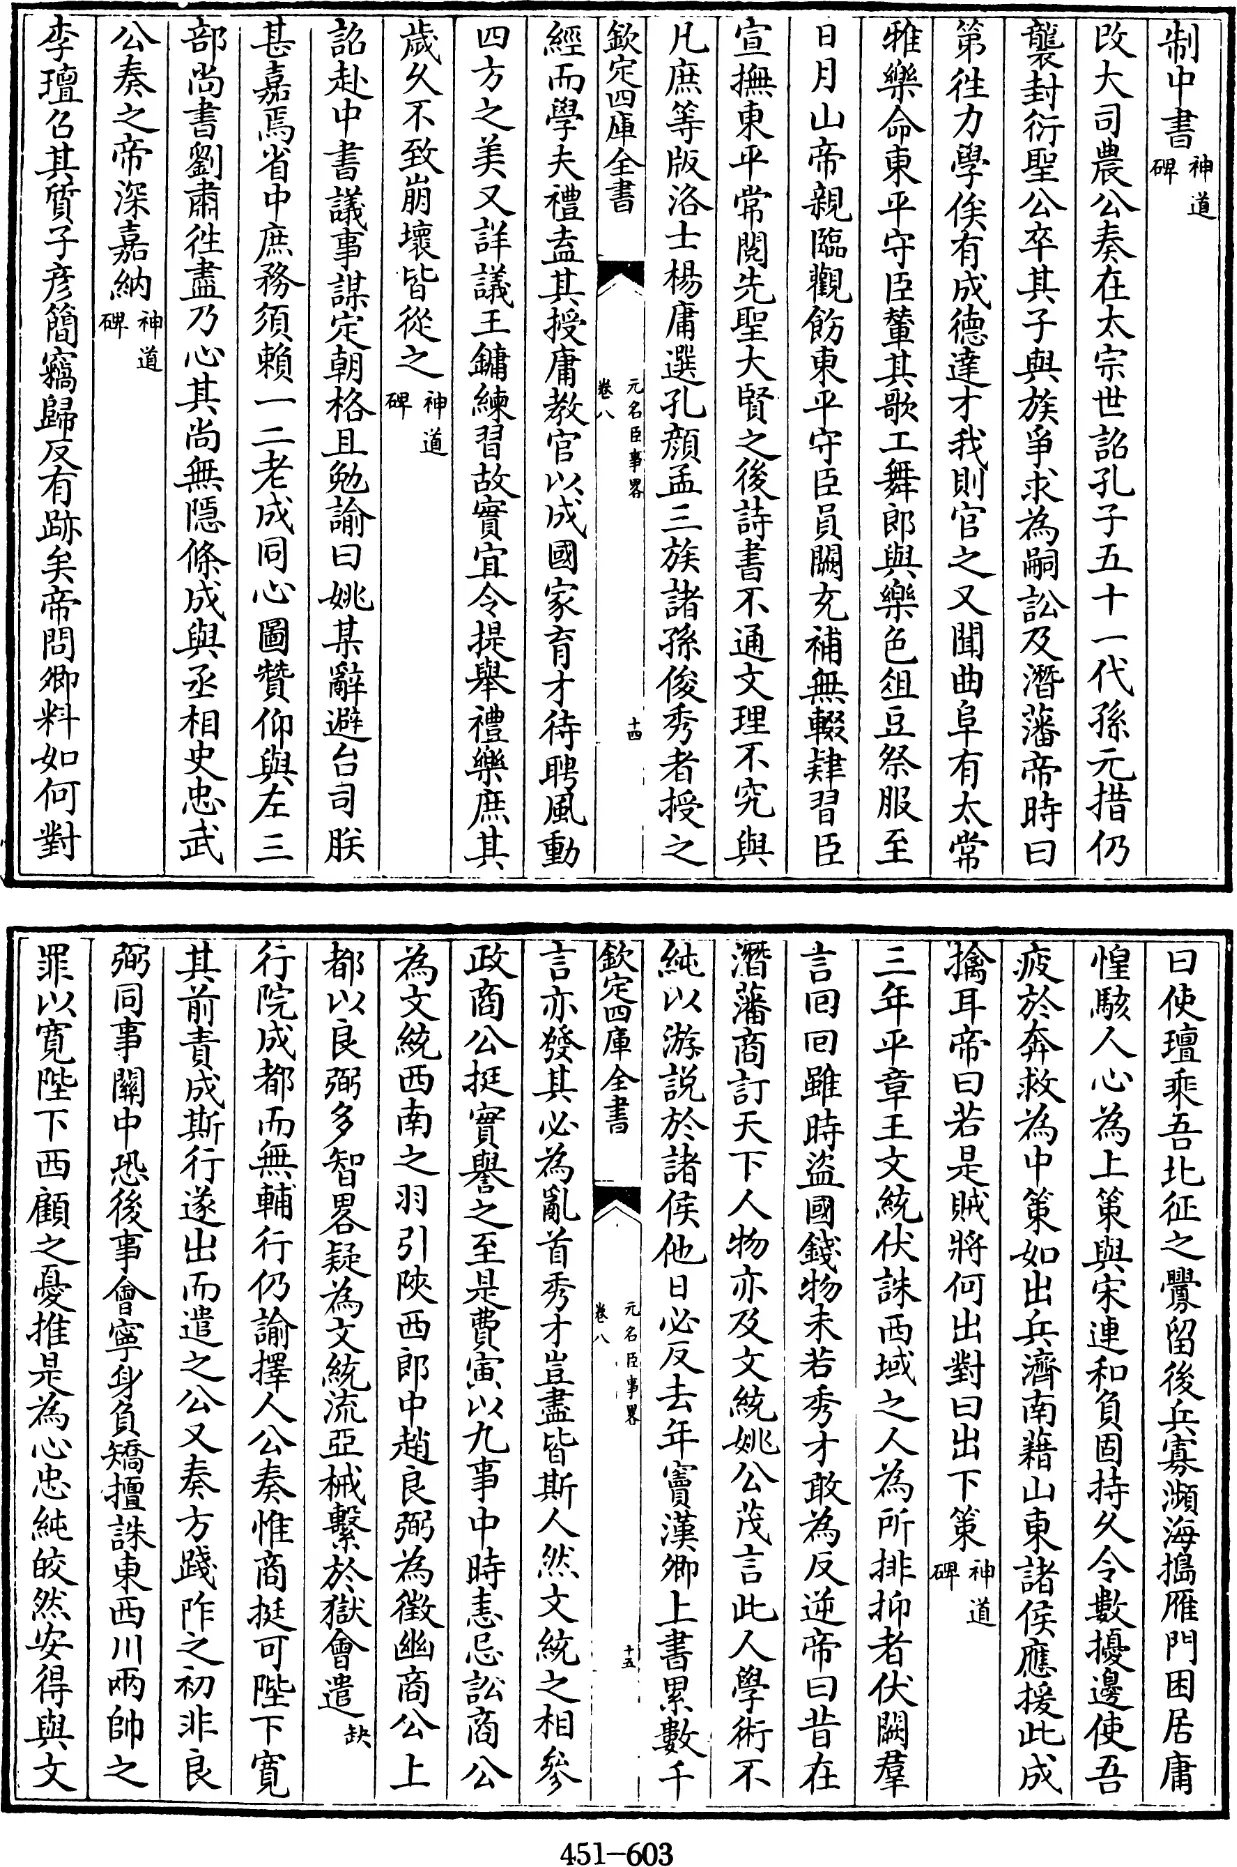 制中書神道碑
改大司農公奏在太宗世詔孔子五十一代孫元措仍
襲封衍聖公卒其子與族爭求為嗣訟及潛藩帝時曰
第往力學俟有成德達才我則官之又聞曲阜有太常
雅樂命東平守臣輦其歌工舞郎與樂色俎豆祭服至
日月山帝親臨觀飭東平守臣員闕充補無輟肄習臣
宣撫東平常閔先聖大賢之後詩書不通文理不究與
凡庶等版洛士楊庸選孔顏孟三族諸孫俊秀者授之
欽定四庫全書
元名臣事畧
卷八
十四
經而學夫禮盍其授庸教官以成國家育才待聘風動
四方之美又詳議王鏞練習故實宜令提舉禮樂庶其
歲久不致崩壞皆從之神道碑
詔赴中書議事謀定朝格且勉諭曰姚某辭避台司朕
甚嘉焉省中庶務須賴一二老成同心圖贊仰與左三
部尚書劉肅往盡乃心其尚無隱條成與丞相史忠武
公奏之帝深嘉納神道碑
李璮召其質子彥簡竊歸反有跡矣帝問卿料如何對
曰使璮乘吾北征之釁留後兵寡瀕海搗雁門困居庸
惶駭人心為上策與宋連和負固持久令數擾邊使吾
疲於奔救為中策如出兵濟南藉山東諸侯應援此成
擒耳帝曰若是賊將何出對曰出下策神道碑
三年平章王文統伏誅西域之人為所排抑者伏闕羣
言回回雖時盜國錢物未若秀才敢為反逆帝曰昔在
潛藩商訂天下人物亦及文統姚公茂言此人學術不
純以游説於諸侯他日必反去年竇漢卿上書累數千
欽定四庫全書
元名臣事畧
卷八
十五
言亦發其必為亂首秀才豈盡皆斯人然文統之相參
政商公挺實譽之至是費寅以九事中時恚忌訟商公
為文統西南之羽引陝西郎中趙良弼為徵幽商公上
都以良弼多智畧疑為文統流亞械繫於獄會遣缺
行院成都而無輔行仍諭擇人公奏惟商挺可陛下寬
其前責成斯行遂出而遣之公又奏方踐阼之初非良
弼同事關中恐後事會寧身負矯擅誅東西川兩帥之
罪以寬陛下西顧之憂推是為心忠純皎然安得與文
451-603